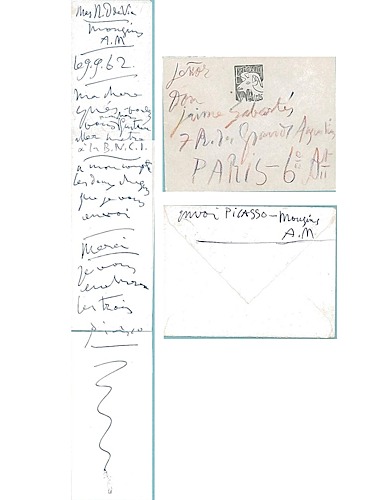 Mas N. D. de Vie
Mougins
A.M
le 9.9.62.
Ma chere
Inés voulez
vous
aller mettre
à la B.N.C.I.
a mon compte
les deux
que je vous
envoi
Merci
je vous
embrasse
les trois
Picasso
Señor
Don
Jaime Sabartés
7 R. des Grands Augustins
PARIS-6e
envoi PICASSO-Mougins
A.M